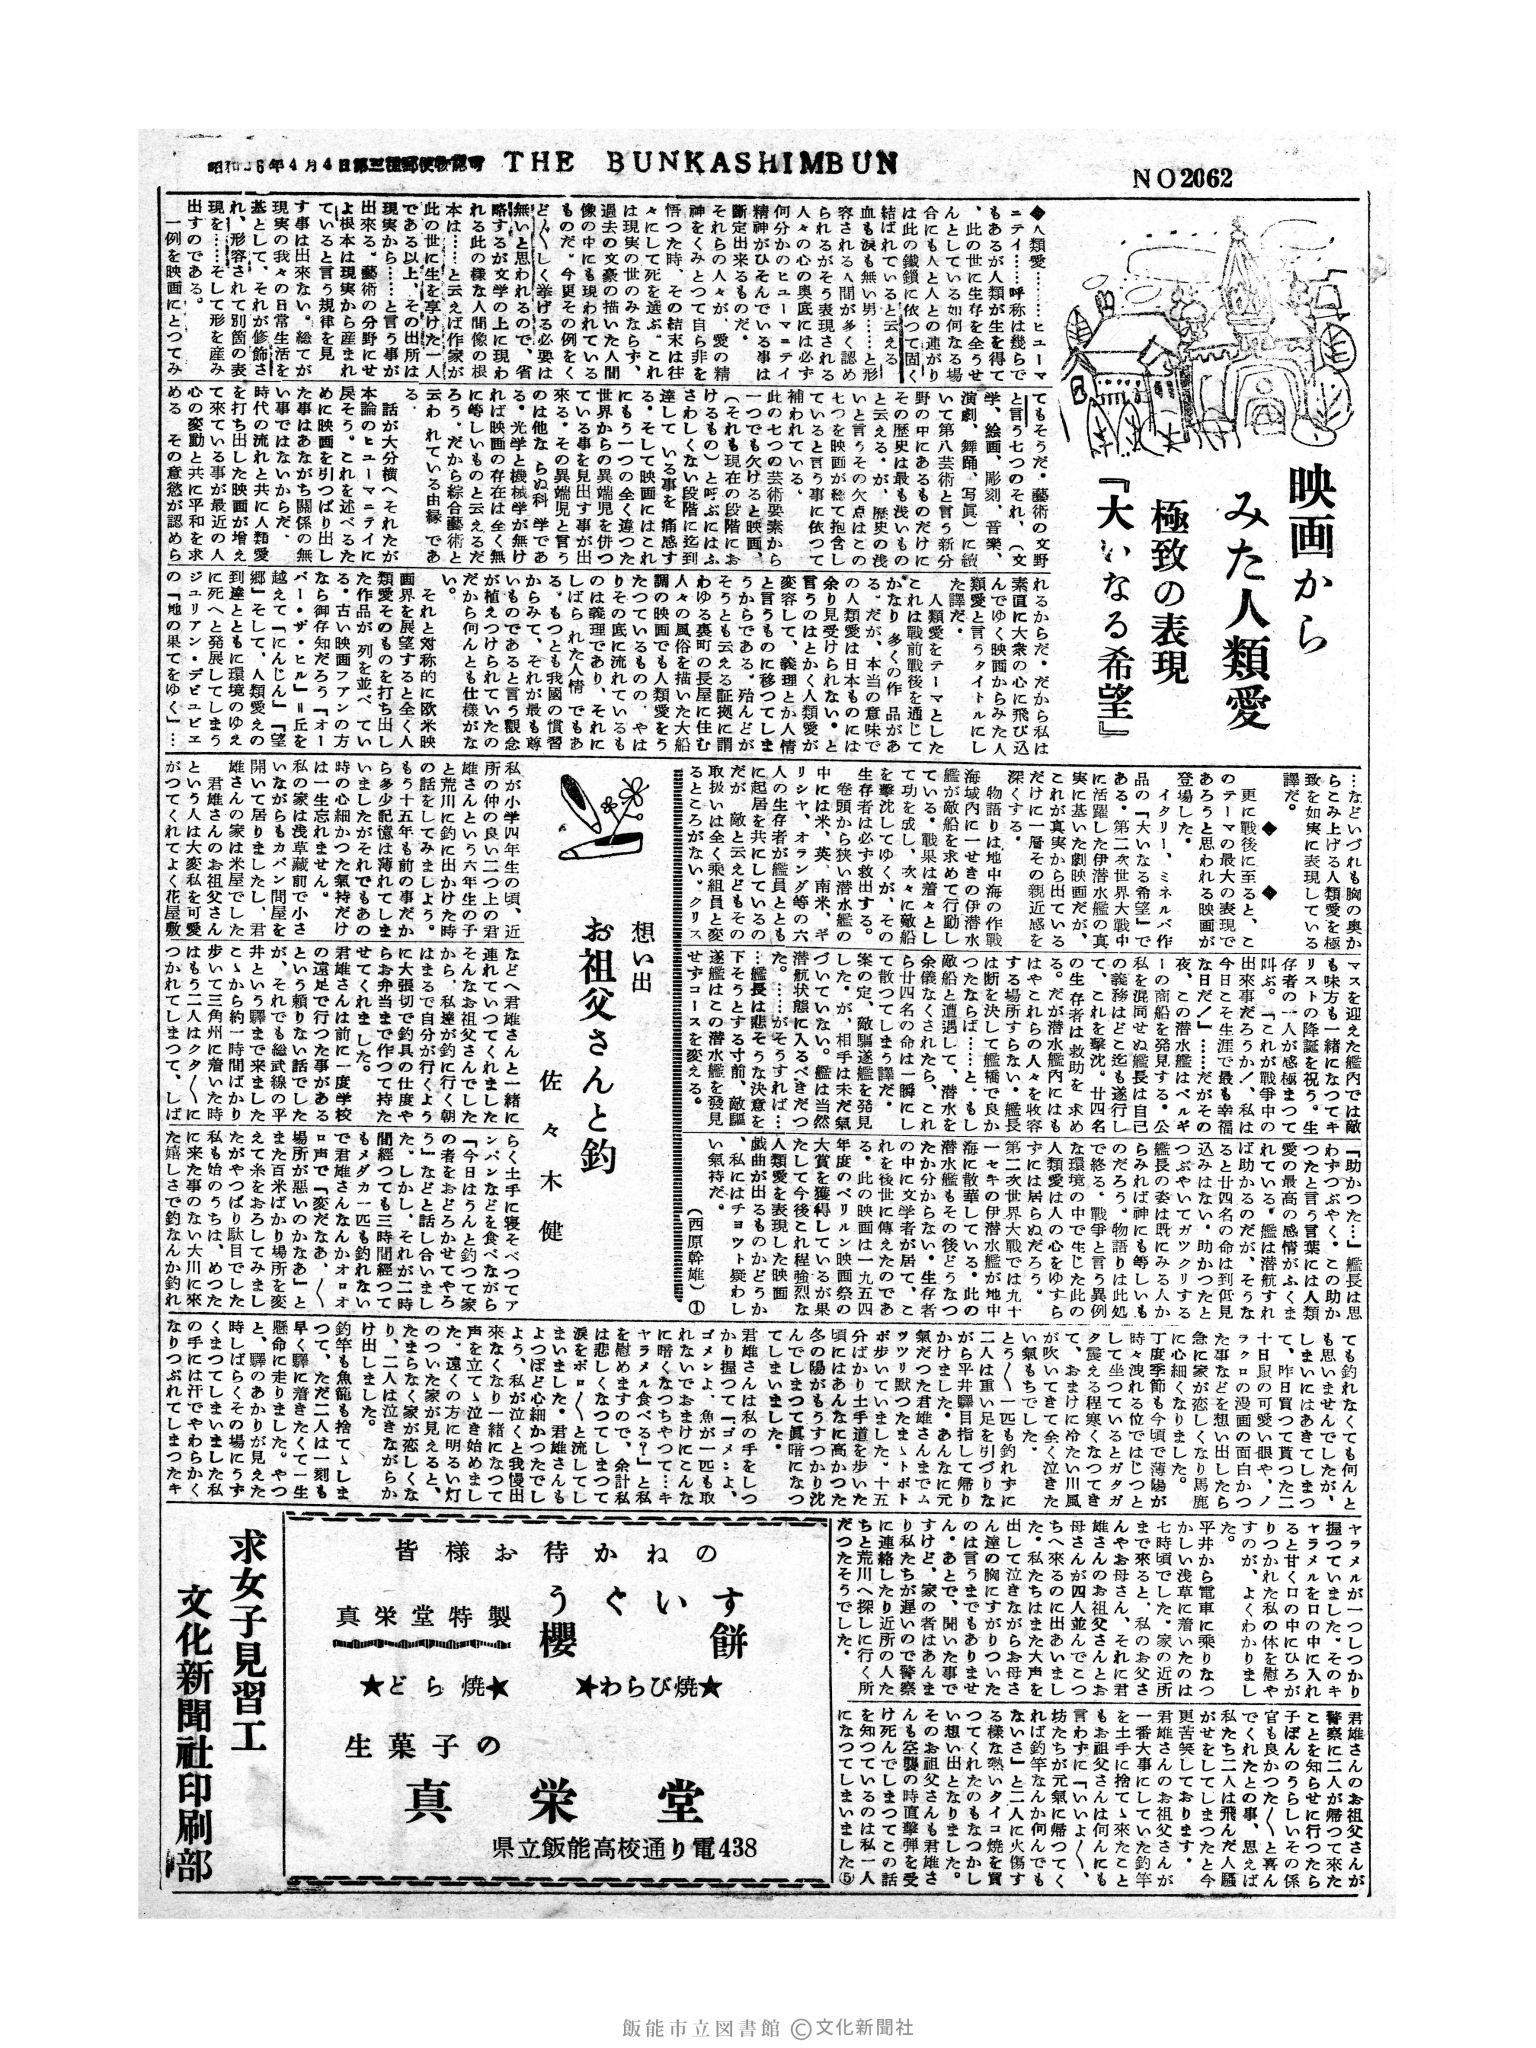 昭和26年4月4日第三種郵便物認可 THE BUNKASHIMBUN NO2062
映画から
みた人類愛
極致の表現
『大いなる希望』
◆人類愛………ヒューマ
ニテイ……呼称は幾らで
もあるが人類が生を得て
、此の世に生存を全うせ
んとしている如何なる場
合にも人と人との連がり
は此の鐵鎖に依つて固く
結ばれていると云える
血も涙も無い男……と形
容される人間が多く認め
られるがそう表現される
人々の心の奥底には必ず
何分かのヒューマニテイ
精神がひそんでいる事は
断定出来るものだ。
それらの人々が、愛の精
神をくみとつて自ら非を
悟つた時、その結末は往
々にして死を選ぶ。これ
は現実の世のみならず、
過去の文豪の描いた人間
像の中にも現われている
ものだ。今更その例をく
ど〱しく挙げる必要は
無いと思われるので、省
略するが文学の上に現わ
れる此の様な人間像の根
本は……と云えば作家が
此の世に生を享けた一人
である以上、その出所は
現実から……と言う事が
出来る。藝術の分野にせ
よ根本は現実から産まれ
ていると言う規律を見
す事は出来ない。総てが
現実の我々の日常生活を
基として、それが修飾さ
れ、形容されて別箇の表
現を……そして形を産み
出すのである。
一例を映画にとつてみ
てもそうだ・藝術の文野
と言う七つのそれ、（文
学、絵画、彫刻、音楽、
演劇、舞踊、写眞）に続
いて第八芸術と言う新分
野の中にあるものだけに
その歴史は最も浅いもの
と云える・が、歴史の浅
いと言うその欠点はこの
七つを映画が総て抱含し
ていると言う事に依つて
補われている．
此の七つの芸術要素から
一つでも欠けると映画、
（それも現在の段階にお
けるもの）と呼ぶにはふ
さわしくない段階に迄到
達している事を痛感す
る・そして映画にはこれ
にもう一つの全く違つた
世界からの異端児を併つ
ている事を見出す事が出
来る．その異端児と言う
のは他ならぬ科学であ
る・光学と機械学が無け
れば映画の存在は全く無
に等しいものと云えるだ
ろう．だから綜合藝術と
云われている由縁であ
る．
話が大分横へそれたが
本論のヒューマニテイに
戻そう．これを述べるた
めに映画を引つぱり出し
た事はあながち関係の無
い事ではないからだ．
時代の流れと共に人類愛
を打ち出した映画が増え
て來ている事が最近の人
心の変動と共に平和を求
める その意慾が認めら
れるからだ・だから私は
素直に大衆の心に飛び込
んでゆく映画からみた人
類愛と言うタイトルにし
た譯だ．
人類愛をテーマとした
これは戦前戦後を通じて
かなり多くの作品があ
る．だが、本当の意味で
の人類愛は日本ものには
余り見受けられない・と
言うのはとかく人類愛が
変容して、義理とか人情
と言うものに移つてしま
うからである．殆んどが
そうとも云える証拠に謂
わゆる裏町の長屋に住む
人々の風俗を描いた大船
調の映画でも人類愛をう
たつているもの丶、やは
りその底に流れているも
のは義理であり、それに
しばられた人情でもあ
る．もつとも我國の慣習
からみて、それが最も尊
いものであると言う観念
が植えつけられていたの
だから何んとも仕様がな
い。
それと対称的に欧米映
画界を展望すると全く人
類愛そのものを打ち出し
た作品が列を並べてい
る・古い映画ファンの方
なら御存知だろう「オー
バー・ザ・ヒル」＝丘を
越えて「にんじん」「望
郷」そして、人類愛えの
到達とともに環境のゆえ
に死へと発展してしまう
ジュリアン・デビュビエ
の「地の果てをゆく」…
…などいづれも胸の奥か
らこみ上げる人類愛を極
致を如実に表現している
譯だ。
◆ ◆
更に戦後に至ると、こ
のテーマの最大の表現で
あろうと思われる映画が
登場した．
イタクリー、ミネルバ作
品の「大いなる希望」で
ある・第二次世界大戦中
に活躍した伊潜水艦の真
実に基いた劇映画だが、
これが真実から出ている
だけに一層その親近感を
深くする．
物語りは地中海の作戦
海域内に一せきの伊潜水
艦が敵船を求めて行動し
ている．戦果は着々とし
て功を成し、次々に敵船
を撃沈してゆくが、その
生存者は必ず救出する．
巻頭から狭い潜水艦の
中には米、英、南米、ギ
リシヤ、オランダ等の六
人の生存者が艦員ととも
に起居を共にしているの
だが 敵と云えどもその
取扱いは全く乗組員と変
るところがない．クリス
マスを迎えた艦内では敵
も味方も一緒になつてキ
リストの降誕を祝う．生
存者の一人が感極まつて
叫ぶ．「これが戦争中の
出來事だろうか！、私は
今日こそ生涯で最も幸福
な日だ！」……だがその
夜、この潜水艦はベルギ
ーの商船を発見する．公
私を混同せぬ艦長は自己
の義務はどこ迄も遂行し
て、これを撃沈．廿四名
の生存者は救助を求め
る。だが潜水艦内にはも
はやこれらの人々を收容
する場所すらない・艦長
は断を決して艦橋で良か
つたならば……と．もし
敵船と遭遇して、潜水を
余儀なくされたら、これ
ら廿四名の命は一瞬にし
て散つてしまう譯だ．
案の定、敵驅遂艦を発見
した．が、相手は未だ氣
づいていない．艦は当然
潜航状態に入るべきだつ
た．……がそうすれば…
…艦長は悲そうな決意を
下そうとする寸前、敵驅
遂艦はこの潜水艦を發見
せずコースを変える．
「助かつた…」艦長は思
わずつぶやく・この助か
つたと言う言葉には人類
愛の最高の感情がふくま
れている。艦は潜航すれ
ば助かるのだが、そうな
ると廿四名の命は到低見
込みはない・助かつたと
つぶやいてガックリする
艦長の姿は既にみる人か
らみれば神にも等しいも
のだろう．物語りは此処
で終る．戦争と言う異例
な環境の中で生じた此の
人類愛は人の心をゆすら
ずには居らぬだろう．
第二次世界大戦では九十
一セキの伊潜水艦が地中
海に散華している．此の
潜水艦もその後どうなつ
たか分からない・生存者
の中に文学者が居て、こ
れを後世に傳えたのであ
る．此の映画は一九五四
年度のベリルン映画祭の
大賞を獲得しているが果
たして今後これ程強烈な
人類愛を表現した映画
戯曲が出るものかどうか
、私にはチョツト疑わし
い氣持だ．
（西原幹雄）①
想い出
お祖父さんと釣
佐々木健
私が小学四年生の頃、近
所の仲の良い二つ上の君
雄さんという六年生の子
と荒川に釣に出かけた時
の話をしてみましよう。
もう十五年も前の事だか
ら多少記憶は薄れてしま
いましたがそれでもあの
時の心細かつた氣持だけ
は一生忘れません．
私の家は浅草藏前で小さ
いながらもカバン問屋を
開いて居りましたし、君
雄さんの家は米屋でした
君雄さんのお祖父さん
という人は大変私を可愛
がつてくれてよく花屋敷
などへ君雄さんと一緒に
連れていつてくれました
そんなお祖父さんでした
から、私達が釣に行く朝
はまるで自分が行くよう
に大張切で釣具の仕度や
らお弁当まで作つて持た
せてくれました．
君雄さんは前に一度学校
の遠足で行つた事がある
という頼りない話でした
が、それでも総武線の平
井という驛まで来ました
こゝから約一時間ばかり
歩いて三角州に着いた時
はもう二人はクタ〱に
つかれてしまつて、しば
らく土手に寝そべつてア
ンパンなどを食べながら
「今日はうんと釣つて家
の者をおどろかせてやろ
う」などと話し合いまし
た．しかし、それが二時
間經つても三時間經つて
もメダカ一匹も釣れない
で君雄さんなんかオロオ
ロ声で「変だなあ、〱
場所が悪いのかなあ」と
また百米ばかり場所を変
えて糸をおろしてみまし
たがやつぱり駄目でした
私も始のうちは、めつた
に来た事のない大川に來
た嬉しさで釣なんか釣れ
ても釣れなくても何んと
も思いませんでしたが、
しまいにはあきてしまつ
て、昨日買つて貰つた二
十日鼠の可愛い眼や、ノ
ラクロの漫画の面白かつ
た事などを想い出したら
急に家が恋しくなり馬鹿
に心細くなりました。
丁度季節も今頃で薄陽が
時々洩れる位ではじつと
して坐つているとガタガ
タ震える程寒くなつてき
て、おまけに冷たい川風
が吹いてきて全く泣きた
い氣もちでした．
とう〱一匹も釣れずに
二人は重い足を引づりな
がら平井驛目指して帰り
かけました．あんなに元
氣だつた君雄さんまでム
ツツリ默つたまゝトボト
ボ歩いていました．十五
分ばかり土手道を歩いた
頃にはあんなに高かつた
冬の陽がもうすつかり沈
んでしまつて眞暗になつ
てしまいました．
君雄さんは私の手をしつ
かり握つて「ゴメンよ、
ゴメンよ、魚が一匹も取
れないでおまけにこんな
に暗くなつちやつて…キ
ャラメル食べる？」と私
を慰めますので、余計私
は悲しくなつてしまつて
涙をポロ〱と流してし
まいました．君雄さんも
よつぽど心細かつたでし
よう、私が泣くと我慢出
來なくなり一緒になつて
声を立てゝ泣き始めまし
た．遠くの方に明るい灯
のついた家が見えると、
たまらなく家が恋しくな
り、二人は泣きながらか
け出しました．
釣竿も魚籠も捨てゝしま
つて、ただ二人は一刻も
早く驛に着きたくて一生
懸命に走りました．やつ
と、驛のあかりが見えた
時しばらくその場にうず
くまつてしまいました私
の手には汗でやわらかく
なりつぶれてしまつたキ
ャラメルが一つしつかり
握つていました．そのキ
ャラメルを口の中に入れ
ると甘く口の中にひろが
りつかれた私の体を慰や
すのが、よくわかりまし
た。
平井から電車に乘りなつ
かしい浅草に着いたのは
七時頃でした．家の近所
まで來ると、私のお父さ
んやお母さん、それに君
雄さんのお祖父さんとお
母さんが四人並んでこつ
ちへ来るのに出あいまし
た．私たちはまた大声を
出して泣きながらお母さ
ん達の胸にすがりついた
のは言うまでもありませ
ん．あとで、聞いた事で
すけど、家の者はあんま
り私たちが遅いので警察
に連絡したり近所の人た
ちと荒川へ探しに行く所
だつたそうでした．
君雄さんのお祖父さんが
警察に二人が帰つて來た
ことを知らせに行つたら
子ぼんのうらしいその係
官も良かつた〱と喜ん
でくれたとの事、思えば
私たち二人は飛んだ人騒
がせをしてしまつたと今
更苦笑しております．
君雄さんのお祖父さんが
一番大事にしていた釣竿
を土手に捨てゝ來たこと
もお祖父さんは何んにも
言わずに「いいよ〱、
坊たちが元氣に帰つてく
れば釣竿なんか何んでも
ないさ」と二人に火傷す
る様な熱いタイコ焼を買
つてくれたのもなつかし
い想い出となりました．
そのお祖父さんも君雄さ
んも空襲の時直撃弾を受
け死んでしまつてこの話
を知つているのは私一人
になつてしまいました⑤
皆様お待かねの
うぐいす
櫻餅
真栄堂特製
★わらび焼★
★どら焼★
生菓子の
真栄堂
県立飯能高校通り電438
求女子見習工
文化新聞社印刷部
飯能市立図書館 ©文化新聞社